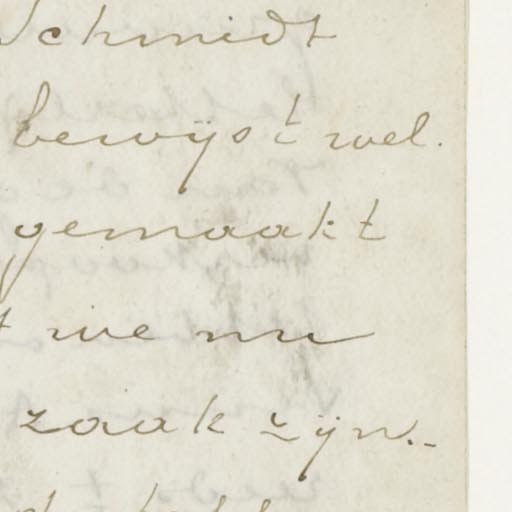 Schmidt
bewijst wel.
gemaakt
we nu
zaak zijn.-